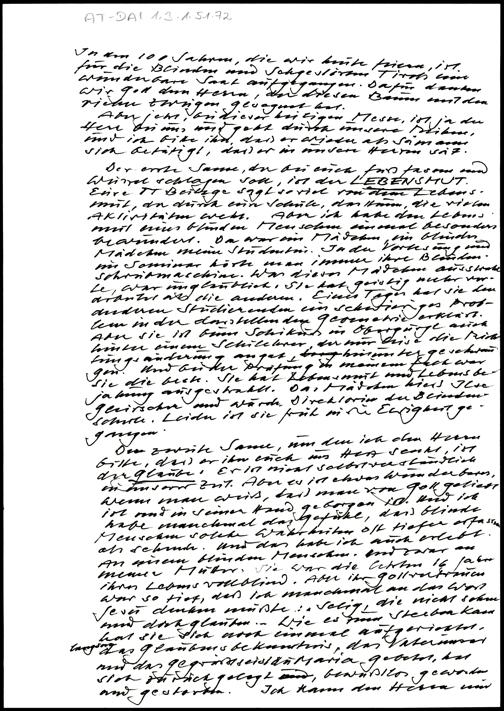 AT-DAI 1.3.1.51.72
In den 100 Jahren, die wir heute feiern, ist
für die Blinden und Sehgestörten Tirols eine
wunderbare Saat aufgegangen. Dafür danken
wir Gott dem Herrn, der diesen Baum mit den
vielen Zweigen gesegnet hat.
Aber jetzt, bei dieser heiligen Messe, ist ja der
Herr bei uns und geht durch unsere Reihen,
und ich bitte ihn, dass er wieder als Sämann
sich betätigt, dass er in unsere Herzen sät.
Der erste Same, der bei euch fassen und
Wurzel schlagen soll, ist der LEBENSMUT.
Eure Beilage sagt soviel von dem Lebens-
mut, der durch eine Schule, das Haus, die vielen
Aktivitäten weht. Aber ich habe den Lebens-
mut eines blinden Menschen einmal besonders
bewundert. Da war ein Mädchen, ein blindes
Mädchen meine Studentin. In der Vorlesung und
im Seminar hörte man immer ihre Blinden-
schreibmaschine. Was dieses Mädchen ausstrahl-
te, war unglaublich. Sie hat geistig mehr ver-
arbeitet als die anderen. Eines Tages hat sie den
anderen Studierenden ein schwieriges Prob-
lem in der darstellenden Geometrie erklärt.
Aber sie ist beim Schikurs in Obergurgl auch
hinter einem Schilehrer, der nur leise die Rich
tungsänderung angab, hinunter geschwun
gen. Und bei der Prüfung in meinem Fach war
sie die beste. Sie hat Lebensmut und Lebensbe-
jahung ausgestrahlt. Das Mädchen hiess Ilse
und wurde Direktorin der Blinden-
schule. Leider ist sie früh in die Ewigkeit ge-
gangen.
Der zweite Same, um den ich den Herrn
bitte, dass er ihn euch ins Herz senkt, ist
der Glaube. Er ist nicht selbstverständlich
in unserer Zeit. Aber es ist etwas Wunderbares,
wenn man weiß, dass man von Gott geliebt
ist und in seiner Hand geborgen ist. Und ich
habe manchmal das Gefühl, dass blinde
Menschen solche Wahrheiten oft tiefer erfassen
als sehende. Und das habe ich auch erlebt.
An einem blinden Menschen. Und zwar an
meiner Mutter. Sie war die letzten 16 Jahre
ihres Lebens vollblind. Aber ihr Gottvertrauen
war so tief, dass ich manchmal an das Wort
Jesu denken mußte: Selig, die nicht sehen
und doch glauben. – Wie es zum Sterben kam
hat sie sich noch einmal aufgerichtet,
langsam das Glaubensbekenntnis, das Vaterunser
und das Gegrüßetseistdu Maria gebetet, hat
sich zurück gelegt und, bewußtlos geworden
und gestorben. Ich kann den Herrn nur